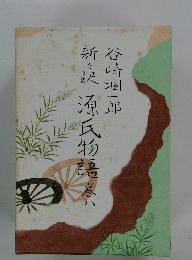 谷崎潤一郎
新々訳 源氏物語 巻八